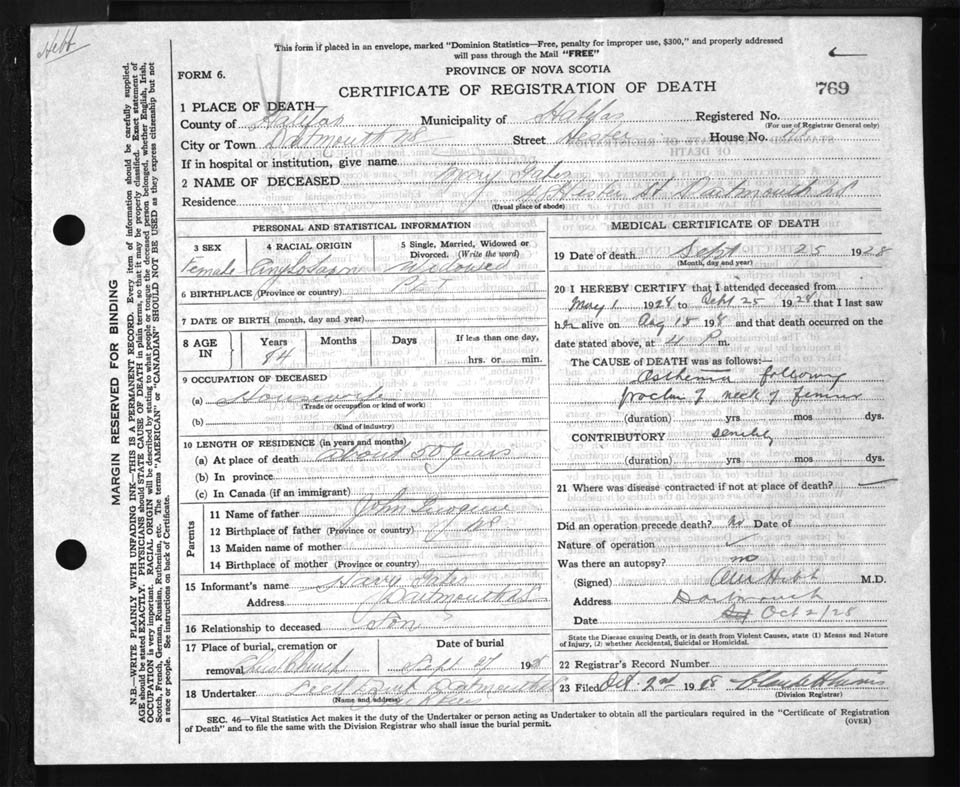 Hebb
This form if placed in an envelope, marked "Dominion Statistics—Free, penalty for improper use, $300," and properly addressed
will pass through the Mail "FREE"
FORM 6.
PROVINCE OF NOVA SCOTIA
CERTIFICATE OF REGISTRATION OF DEATH
769
1 PLACE OF DEATH—
County of Halifax Municipality of Halifax Registered No.
(For use of Registrar General only)
City or Town Dartmouth NS Street Hester House No.
If in hospital or institution, give name
2 NAME OF DECEASED Mary
Residence Hester St Dartmouth NS
(Usual place of abode)
PERSONAL AND STATISTICAL INFORMATION
3 SEX 4 RACIAL ORIGIN 5 Single, Married, Widowed or
Divorced. (Write the word)
Female Anglo Saxon Widowed
6 BIRTHPLACE (Province or country)
7 DATE OF BIRTH (month, day and year)
8 AGE IN Years Months Days If less than one day,
84 hrs. or min.
9 OCCUPATION OF DECEASED
(a) Housewife
(Trade or occupation or kind of work)
(b)
(Kind of industry)
10 LENGTH OF RESIDENCE (in years and months)
(a) At place of death about 50 years
(b) In province
(c) In Canada (if an immigrant)
Parents
11 Name of father John
12 Birthplace of father (Province or country) NS
13 Maiden name of mother —
14 Birthplace of mother (Province or country)
15 Informant's name Harry
Address Dartmouth NS
16 Relationship to deceased Son
17 Place of burial, cremation or Date of burial
removal Christ Church Sept 27 1928
18 Undertaker Dartmouth NS
(Name and address)
MEDICAL CERTIFICATE OF DEATH
19 Date of death Sept 25 1928
(Month, day and year)
20 I HEREBY CERTIFY that I attended deceased from
May 1 1928 to Sept 25 1928 that I last saw
her alive on Aug 15 198 and that death occurred on the
date stated above, at 4 P m.
The CAUSE OF DEATH was as follows:—
Asthenia following
neck of femur
(duration) yrs mos dys.
CONTRIBUTORY senility
(duration) yrs mos dys.
21 Where was disease contracted if not at place of death? —
Did an operation precede death? no Date of
Nature of operation
Was there an autopsy? no
(Signed) Hebb M.D.
Address Dartmouth
Date Oct 2/28
State the Disease causing Death, or in death from Violent Causes, state (1) Means and Nature
of Injury, (2) whether Accidental, Suicidal or Homicidal.
22 Registrar's Record Number
23 Filed Oct 2nd 1928
(Division Registrar)
SEC. 46—Vital Statistics Act makes it the duty of the Undertaker or person acting as Undertaker to obtain all the particulars required in the "Certificate of Registration
of Death" and to file the same with the Division Registrar who shall issue the burial permit.
(OVER)
MARGIN RESERVED FOR BINDING
N.B.—WRITE PLAINLY WITH UNFADING INK—THIS IS A PERMANENT RECORD. Every item of information should be carefully supplied.
AGE should be stated EXACTLY. PHYSICIANS should STATE CAUSE OF DEATH in plain terms, so that it may be properly classified. Exact statement of
OCCUPATION is very important. RACIAL ORIGIN will be described by stating to what people or tongue the deceased person belonged, whether English, Irish,
Scotch, French, German, Russian, Ruthenian, etc. The terms "AMERICAN" or "CANADIAN" SHOULD NOT BE USED as they express citizenship but not
a race or people. See instructions on back of Certificate.